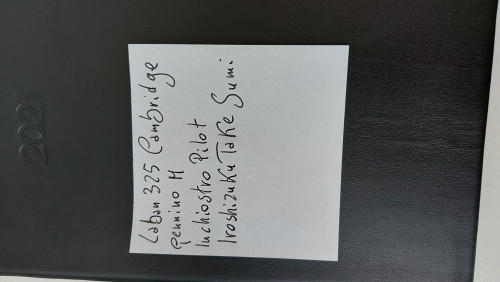 2021
Laban 325 Cambridge
Pennino M
Inchiostro Pilot
Iroshizuku Take Sumi